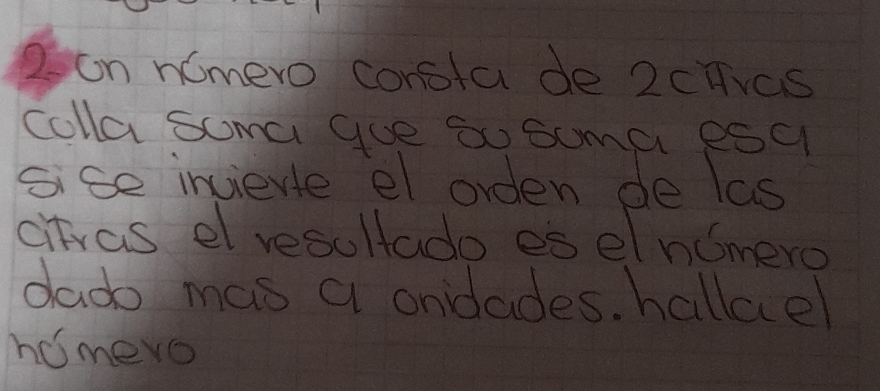 2- Un número consta de 2 cifras
colla suma que su suma es 9
si se invierte el orden de las
cifras el resultado es el número
dado mas 9 unidades. halla el
número